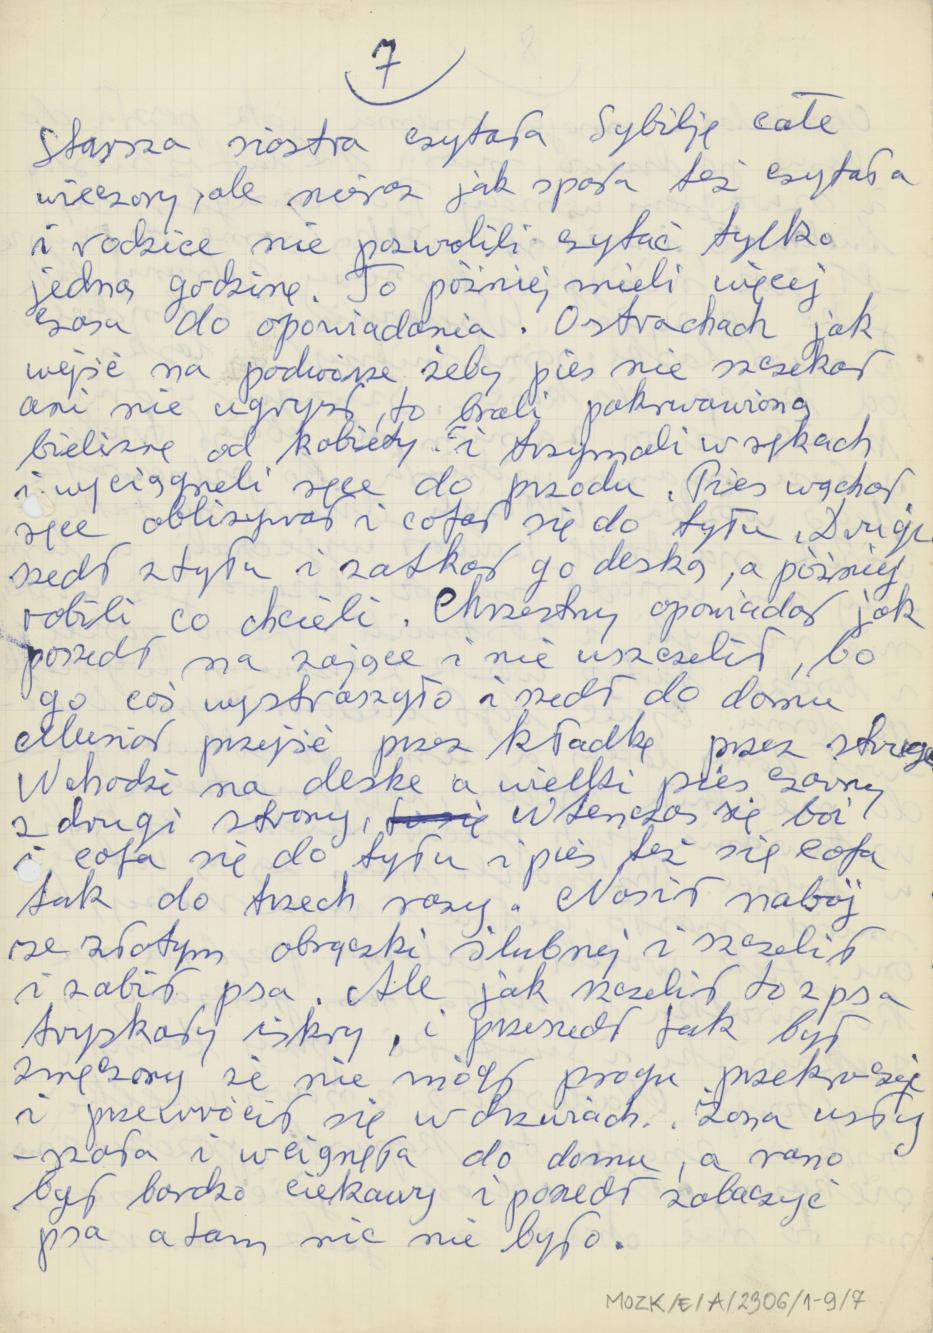 7
Starsza siostra czytała Sybilję całe
wieczory, ale nieraz jak spała też czytała
i rodzice nie pozwolili czytać tylko
jedną godzinę. To później mieli więcej
czasu do opowiadania. O strachach jak
wejść na podwórze żeby pies nie szczekał
ani nie ugryzł, to brali pokrwawioną
bieliznę od kobiety i trzymali w rękach
i wyciągneli ręce do przodu. Pies wąchał
ręce oblizywał i cofał się do tyłu. Drugi
szedł z tyłu i zatkał go deską, a później
robili co chcieli. Chrzestny opowiadał jak
poszedł na zające i nie uszczelił, bo
go coś wystraszyło i szedł do domu
Musiał przejść przez kładkę przez strugę
Wchodzi na deske a wielki pies czarny
z drugi strony, to się Wtenczas się boi
i cofa się do tyłu i pies też się cofa
tak do trzech razy. Nosił nabój
ze złotym obrączki ślubnej i szczelił
i zabił psa. Ale jak szczelił to z psa
tryskały iskry, i przeszedł tak był
zmęczony że nie mógł progu przekroczyć
i przewrócił się w drzwiach. Żona usły
-szała i wcignęła do domu, a rano
był bardzo ciekawy i poszedł zobaczyć
psa a tam nic nie było.
MOZK/E/A/2306/1-9/7